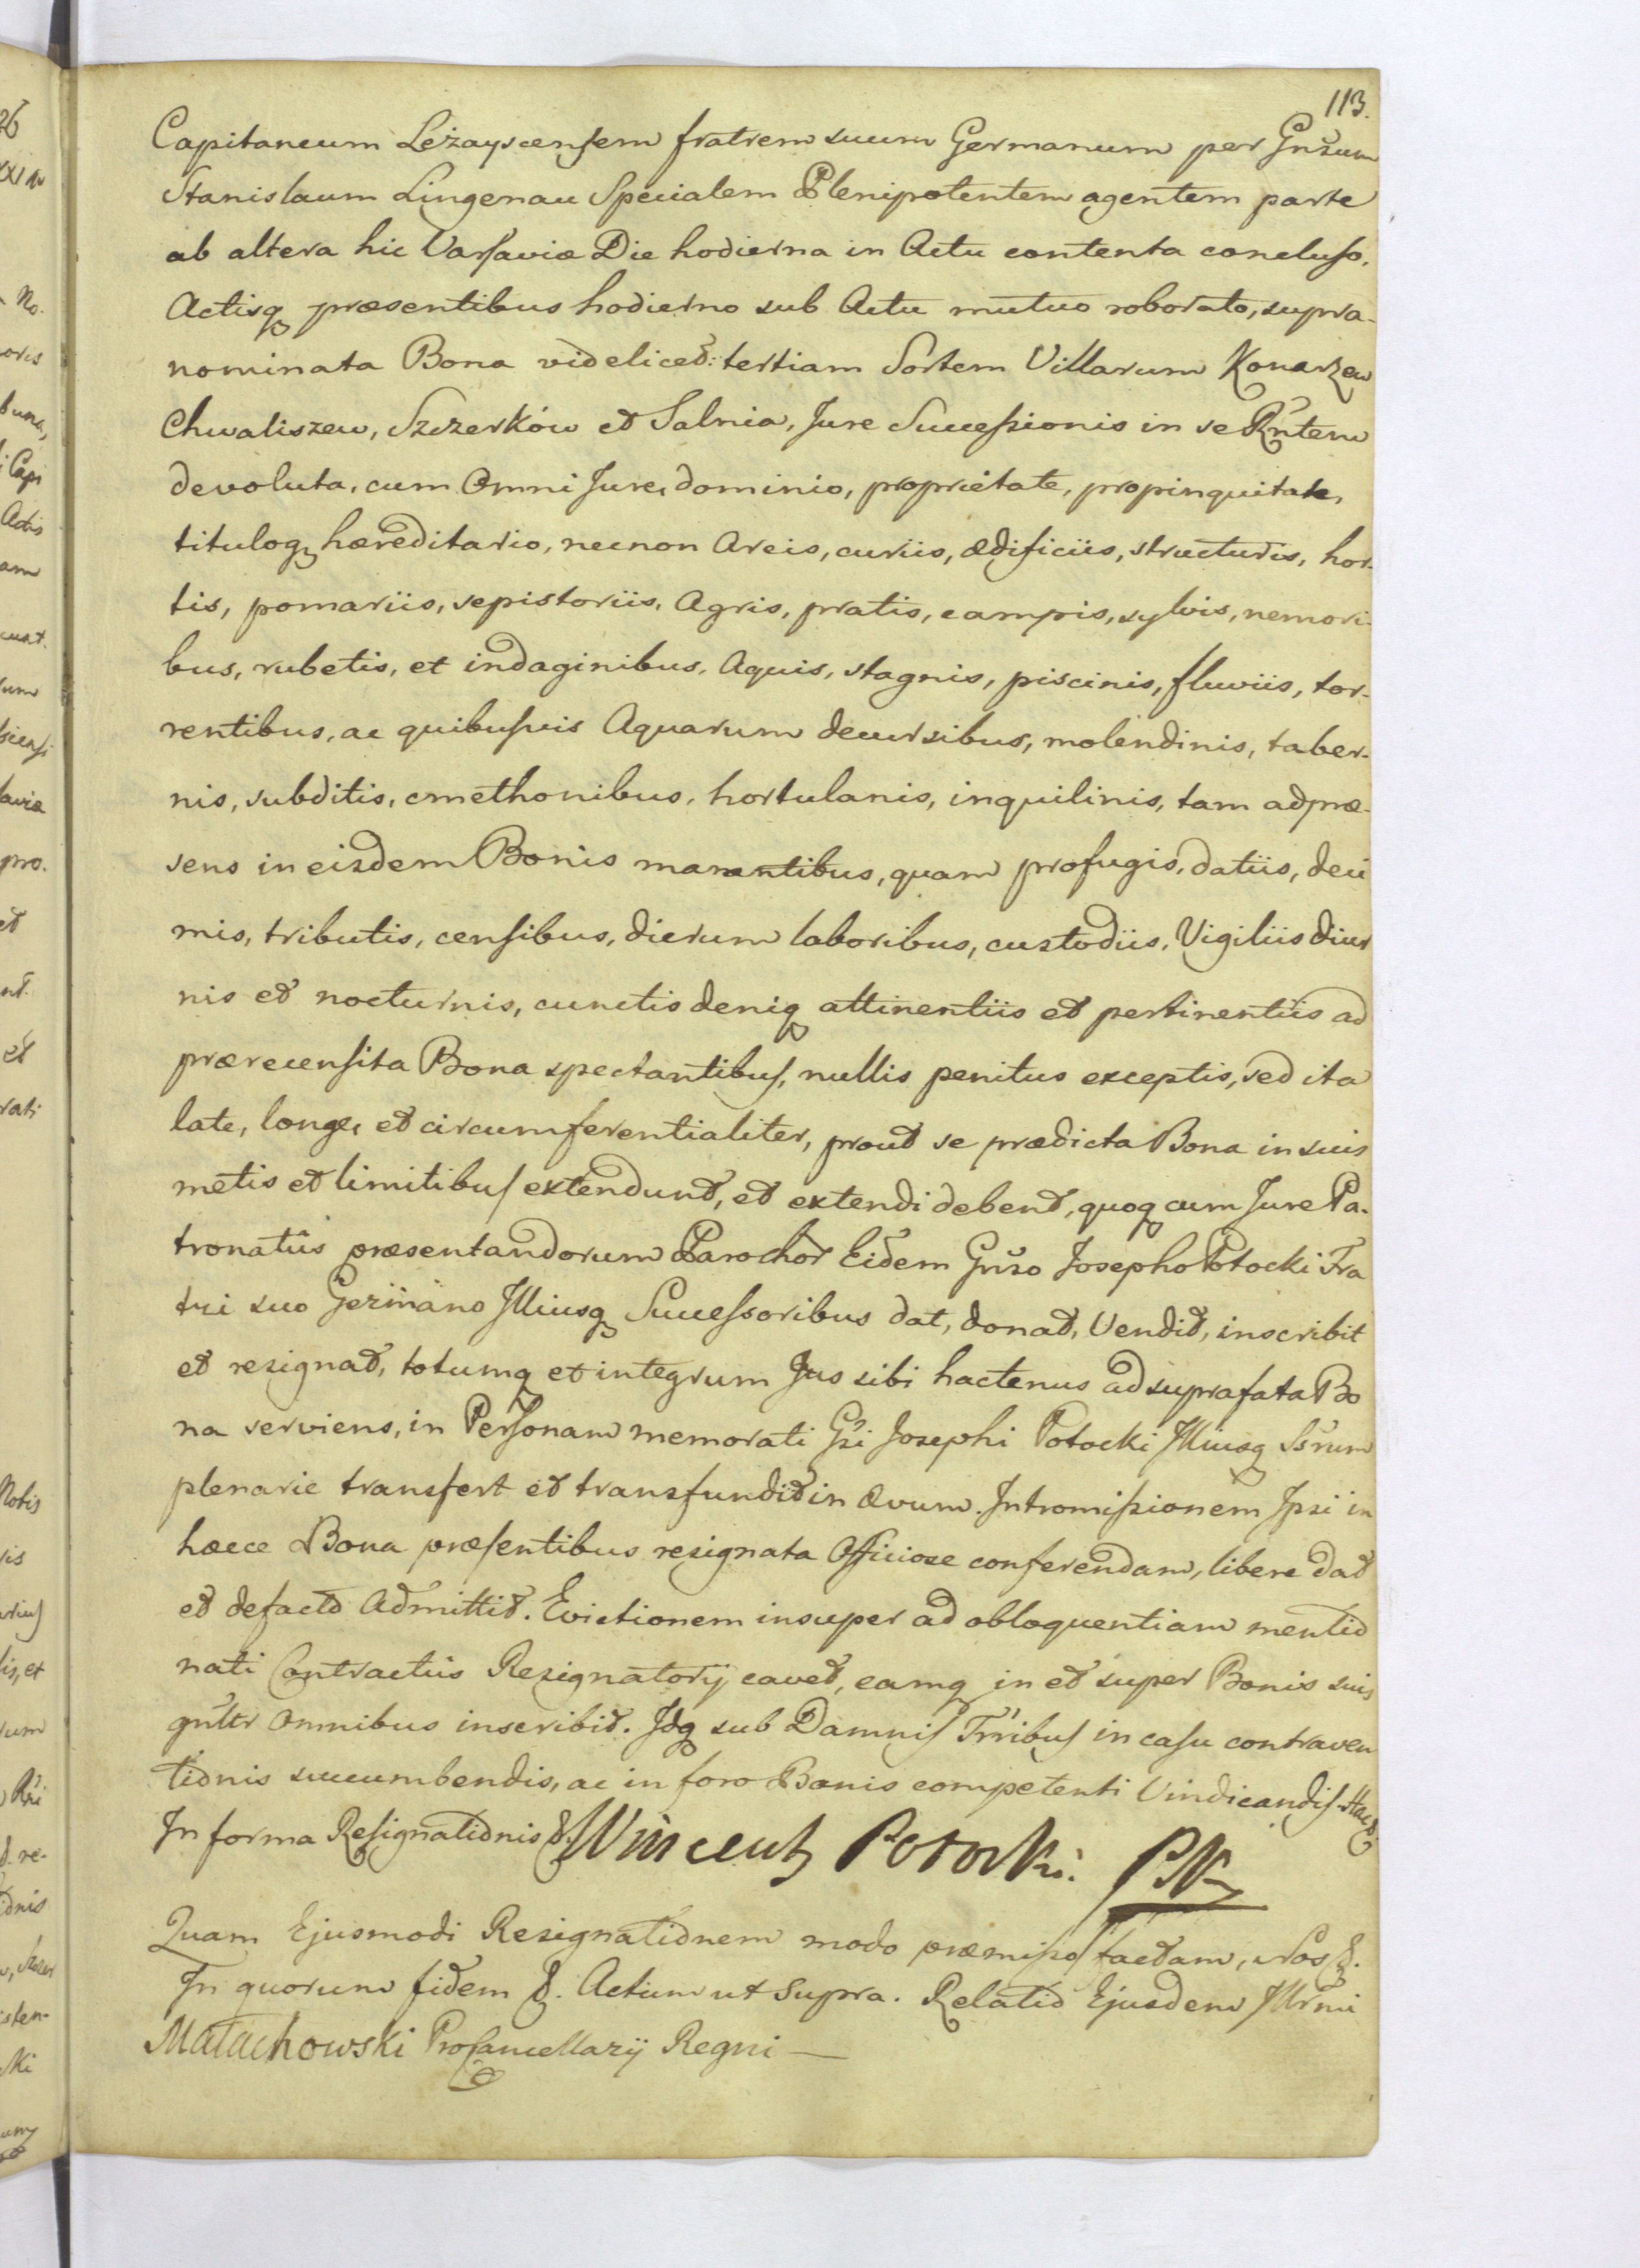 113.
Capitaneum Leżayscensem fratrem suum Germanum per Gnsum
Stanislaum Lingenau Specialem Plenipotentem agentem parte
ab altera hic Varsaviæ Die hodierna in Actu contenta concluso,
Actisq præsentibus hodierno sub Actu mutuo roborato, supra-
nominata Bona videlicet: tertiam Sortem Villarum Konarzew
Chwaliszew, Szczerków et Salnia, Jure Successionis in se Rntem
devoluta, cum Omni Jure, dominio, proprietate, propinquitate,
tituloq hæreditario, necnon Areis, curiis, ædificiis, structuris, hor-
tis, pomariis, sepistoriis, Agris, pratis, campis, sylvis, nemori-
bus, rubetis, et indaginibus, Aquis, stagnis, piscinis, fluviis, tor-
rentibus, ac quibusvis Aquarum decursibus, molendinis, taber-
nis, subditis, cmethonibus, hortulanis, inquilinis, tam ad præ-
sens in eisdem Bonis manentibus, quam profugis, datiis, deci
mis, tributis, censibus, dierum laboribus, custodiis, Vigiliis diur
nis et nocturnis, cunctis deniq attinentiis et pertinentiis ad
prærecensita Bona spectantibus, nullis penitus exceptis, sed ita
late, longe, et circumferentialiter, prout se prædicta Bona in suis
metis et limitibus extendunt, et extendi debent, quoq cum Jure Pa-
tronatûs præsentandorum Parochor Eidem Gnso Josepho Potocki Fra
tri suo Germano Illiusq Successoribus dat, donat, Vendit, inscribit
et resignat, totumq et integrum Jus sibi hactenus ad suprafata Bo
na serviens, in Personam memorati Gsi Josephi Potocki Illiusq Ssrum
plenarie transfert et transfundit in ævum. Intromissionem Ipsi in
hæcce Bona præsentibus resignata Officiose conferendam, libere dat
et defacto Admittit. Evictionem insuper ad obloquentiam mentio
nati Contractûs Resignatorij cavet, eamq in et super Bonis suis
gnltr Omnibus inscribit. Idq sub Damnis Trribus in casu contraven
tionis succumbendis, ac in foro Bonis competenti Vindicandis. Hac
In forma Resignationis &. Wincenty Potocki. PK
Quam Ejusmodi Resignationem modo præmisso factam, Nos &.
In quorum fidem &. Actum ut Supra. Relatio Ejusdem Illrmi
Małachowski ProCancellarij Regni —